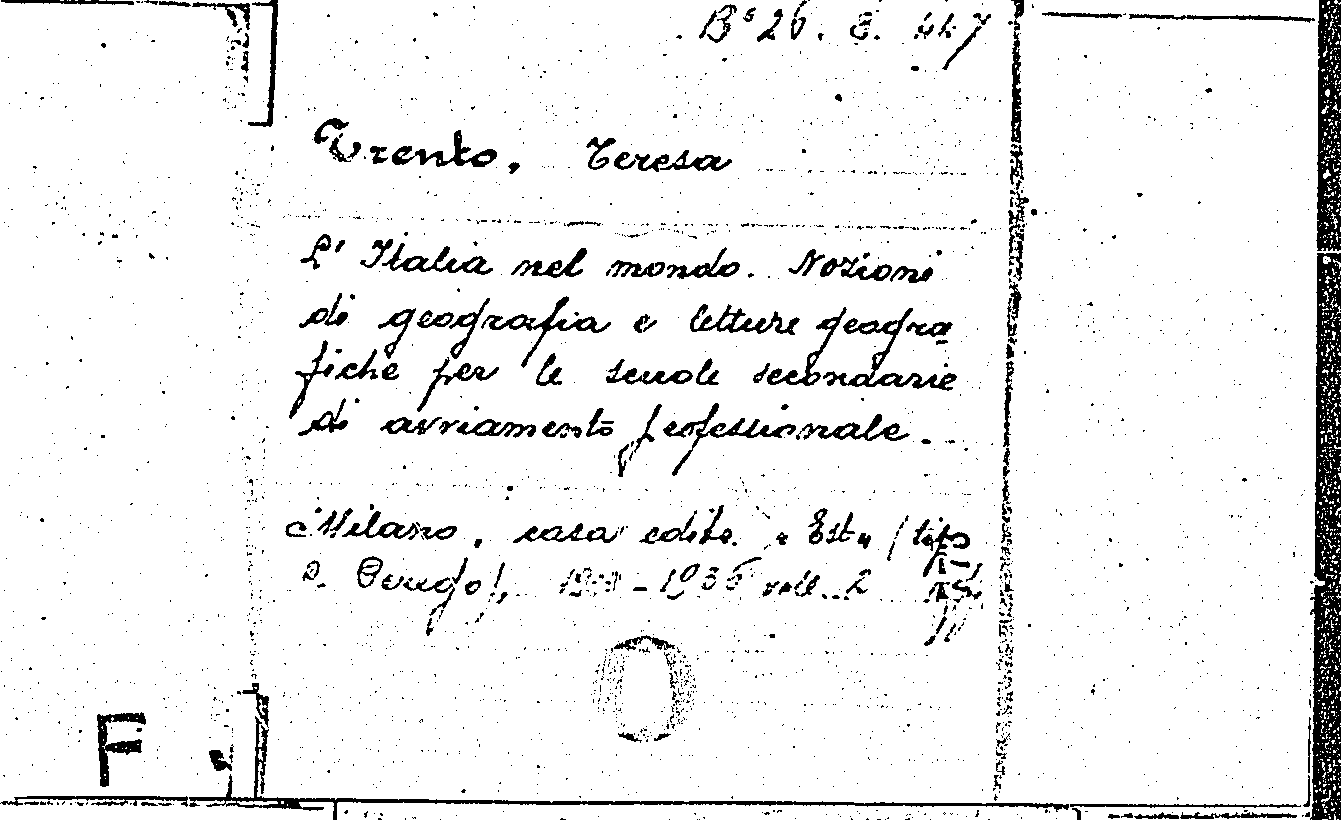 Bˢ 26. E. 447
Trento, Teresa
L' Italia nel mondo. Nozioni
di geografia e letture geogra
fiche per le scuole secondarie
di avviamento professionale.
Milano, casa editr. "Est" (tip.
Perego), - 1936 voll. 2
F